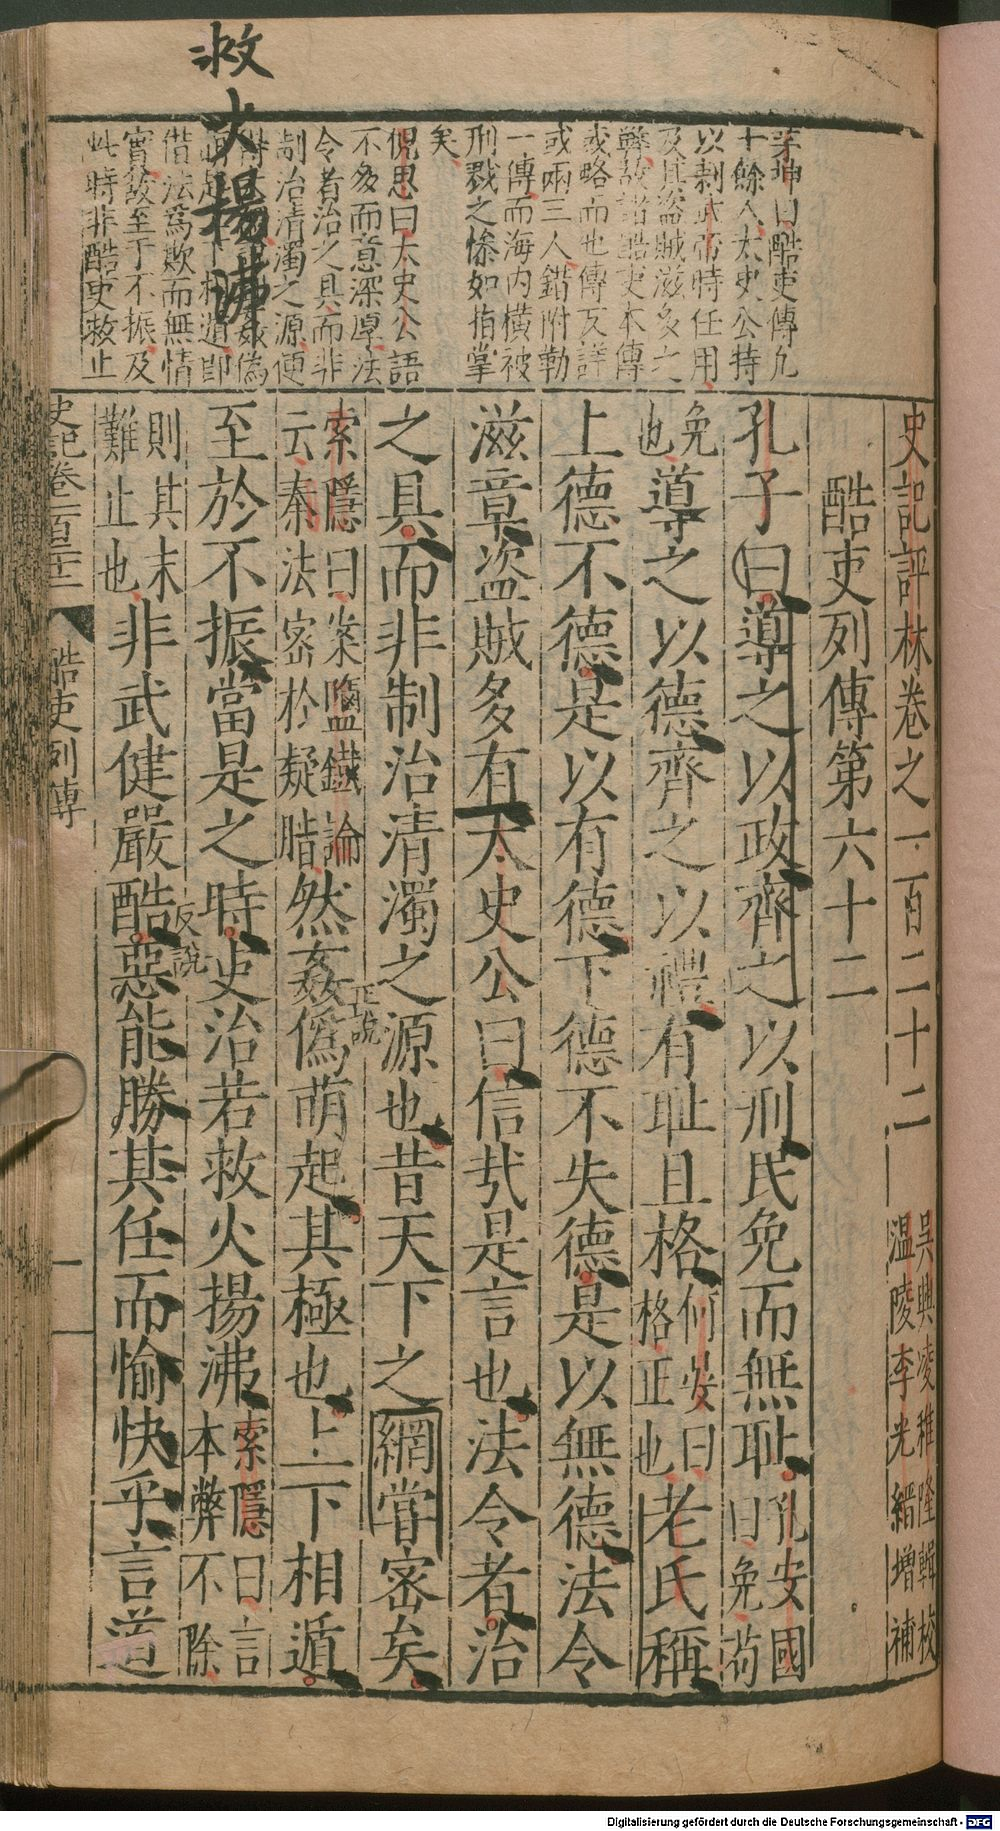 史記評林卷之一百二十二
吳興凌稚隆輯校
溫陵李光縉增補
酷吏列傳第六十二
孔子曰導之以政齊之以刑民免而無耻孔安國曰免苟
免也導之以德齊之以禮有耻且格何晏曰格正也老氏稱
上德不德是以有德下德不失德是以無德法令
滋章盜賊多有太史公曰信㢤是言也法令者治
之具而非制治清濁之源也昔天下之網甞密矣
索隱曰案鹽鐵論云秦法密於凝脂然姦偽萌起其極也上下相遁
至於不振當是之時吏治若救火揚沸索隱曰言本弊不除
則其末難止也非武健嚴酷惡能勝其任而愉快乎言道
正說
反說
史記卷一百二十二
酷吏列傳
曰酷吏傳凡
十餘人太史公持
以刺武帝時任用
及其盜賊滋多之
酷吏本傳
或略而他傳互詳
或兩三人錯附勒
一傳而海内橫被
刑戮之慘如指掌
矣
倪思曰太史公語
不多而意深厚法
令者治之具而非
制治清濁之源便
偽
下相遁即
借法為欺而無情
實故至于不振及
此時非酷吏救止
救火揚沸
Digitalisierung gefördert durch die Deutsche Forschungsgemeinschaft - DFG